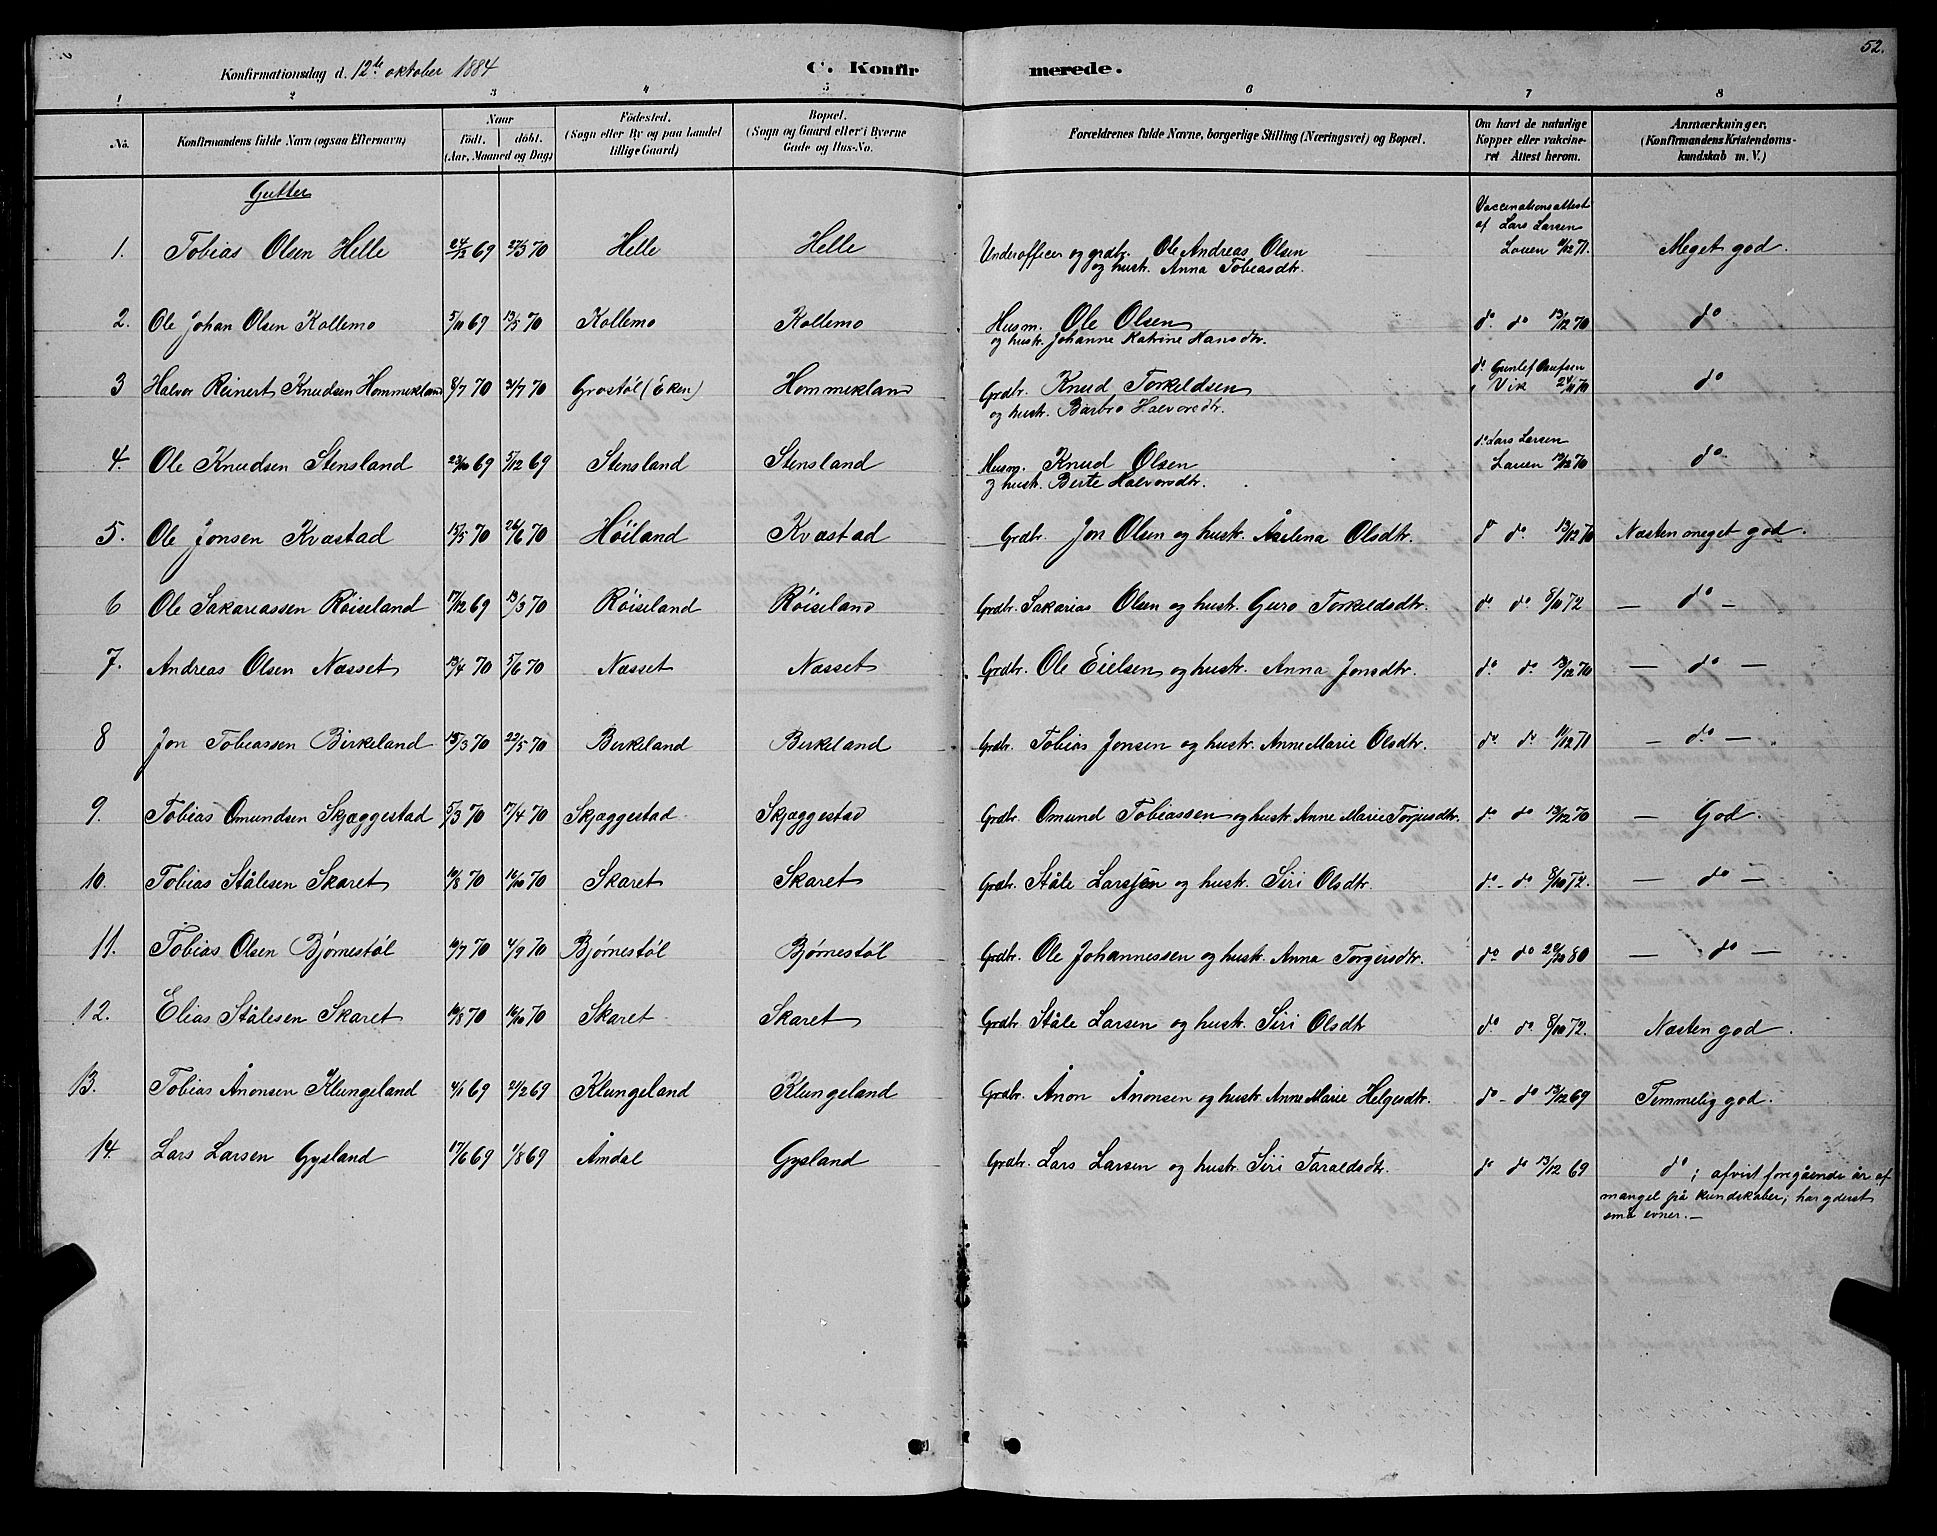 52.
Konfirmationsdag d. 12te oktober 1884 C. Konfirmerede.
1 2 3 4 5 6 7 8
No. Konfirmandens fulde Navn (ogsaa Efternavn) Naar födt. döbt. (Aar, Maaned og Dag) Födested. (Sogn eller By og paa Landet tillige Gaard) Bopæl. (Sogn og Gaard eller i Byerne Gade og Hus-No. Forældrenes fulde Navne, borgerlige Stilling (Næringsvei) og Bopæl. Om havt de naturlige Kopper eller vakcineret Attest herom. Anmærkninger. (Konfirmandens Kristendomskundskab m. V.)
Gutter
1. Tobias Olsen Helle 24/12 69 27/3 70 Helle Helle Underofficer og grdbr. Ole Andreas Olsen og hustr. Anna Tobiasdtr. Vaccinationsattest af Lars Larsen Lauen 11/12 71. Meget god.
2. Ole Johan Olsen Kollemo 5/10 69 13/5 70 Kollemo Kollemo Husm. Ole Olsen og hustr. Johanne Katrine Hansdtr. do. do 13/12 70 do
3 Halvor Reinert Knudsen Hommekland 8/7 70 31/7 70 Grostøl (Eken) Hommekland Grdbr. Knud Torkeldsen og hustr. Barbro Halvorsdtr. do Gunlef Vik 24/11 70 do
4. Ole Knudsen Stensland 23/10 69 5/12 69 Stensland Stensland Husm. Knud Olsen og hustr. Berte Halvorsdtr. do. Lars Larsen Lauen 13/12 70 do
5. Ole Jonsen Kvastad 15/5 70 26/6 70 Høiland Kvastad Grdbr. Jon Olsen og hustr. Åselena Olsdtr. do do. 13/12 70 Næsten meget god.
6 Ole Sakariassen Røiseland 17/12 69 13/3 70 Røiseland Røiseland Grdbr. Sakarias Olsen og hustr. Guro Torkeldsdtr. do do 8/10 72 — do —
7. Andreas Olsen Næsset 13/4 70 5/6 70 Næsset Næsset Grdbr. Ole Eielsen og hustr. Anna Jonsdtr. do. do. 13/12 70 — do —
8 Jon Tobiassen Birkeland 15/3 70 22/5 70 Birkeland Birkeland Grdbr. Tobias Jonsen og hustr. Anne Marie Olsdtr. do. do. 11/12 71 — do. —
9. Tobias Omundsen Skjæggestad 5/3 70 17/4 70 Skjæggestad Skjæggestad Grdbr. Omund Tobiassen og hustr. Anne Marie Torjusdtr. do. do 13/12 70 — God.
10. Tobias Stålesen Skaret 10/8 70 16/10 70 Skaret Skaret Grdbr. Ståle Larsen og hustr. Siri Olsdtr. do. - do 8/10 72. — do —
11. Tobias Olsen Bjørnestøl 10/7 70 4/9 70 Bjørnestøl Bjørnestøl Grdbr. Ole Johannessen og hustr. Anna Torgersdtr. do. do 80 — do —
12. Elias Stålesen Skaret 10/8 70 16/10 70 Skaret Skaret Grdbr. Ståle Larsen og hustr. Siri Olsdtr do do. 8/10 72. Næsten god.
13. Tobias Ånonsen Klungeland 4/1 69 21/2 69 Klungeland Klungeland Grdbr. Ånon Ånonsen og hustr. Anne Marie Helgesdtr. do - do 13/12 69 Temmelig god.
14. Lars Larsen Gysland 17/6 69 1/8 69 Åmdal Gysland Grdbr. Lars Larsen og hustr. Siri Taraldsdtr. do do 13/12 69 do; afvist foregående år af mangel på kundskaber; har yderst små evner. —